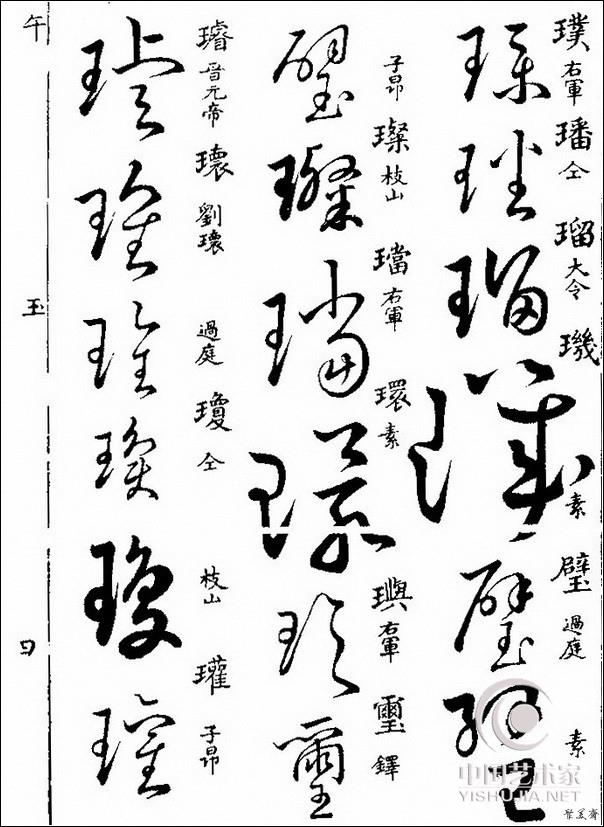 璞 右軍
璠 仝
瑠 大令
璣 素
璧 過庭
素
子昂
璨 枝山
璫 右軍
環 素
璵 右軍
璽 鐸
璿 晉元帝
瓌 劉瓌
過庭
瓊 仝
枝山
瓘 子昂
午
玉
中国艺术家
YISHUJIA.NET